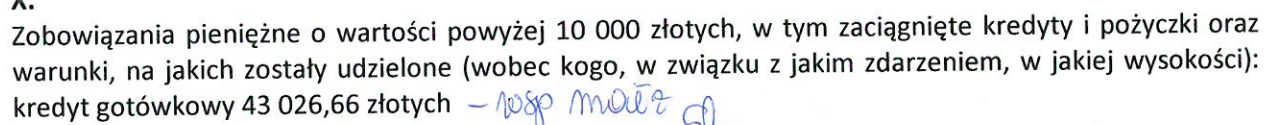 X.
Zobowiązania pieniężne o wartości powyżej 10 000 złotych, w tym zaciągnięte kredyty i pożyczki oraz
warunki, na jakich zostały udzielone (wobec kogo, w związku z jakim zdarzeniem, w jakiej wysokości):
kredyt gotówkowy 43 026,66 złotych – wsp małż